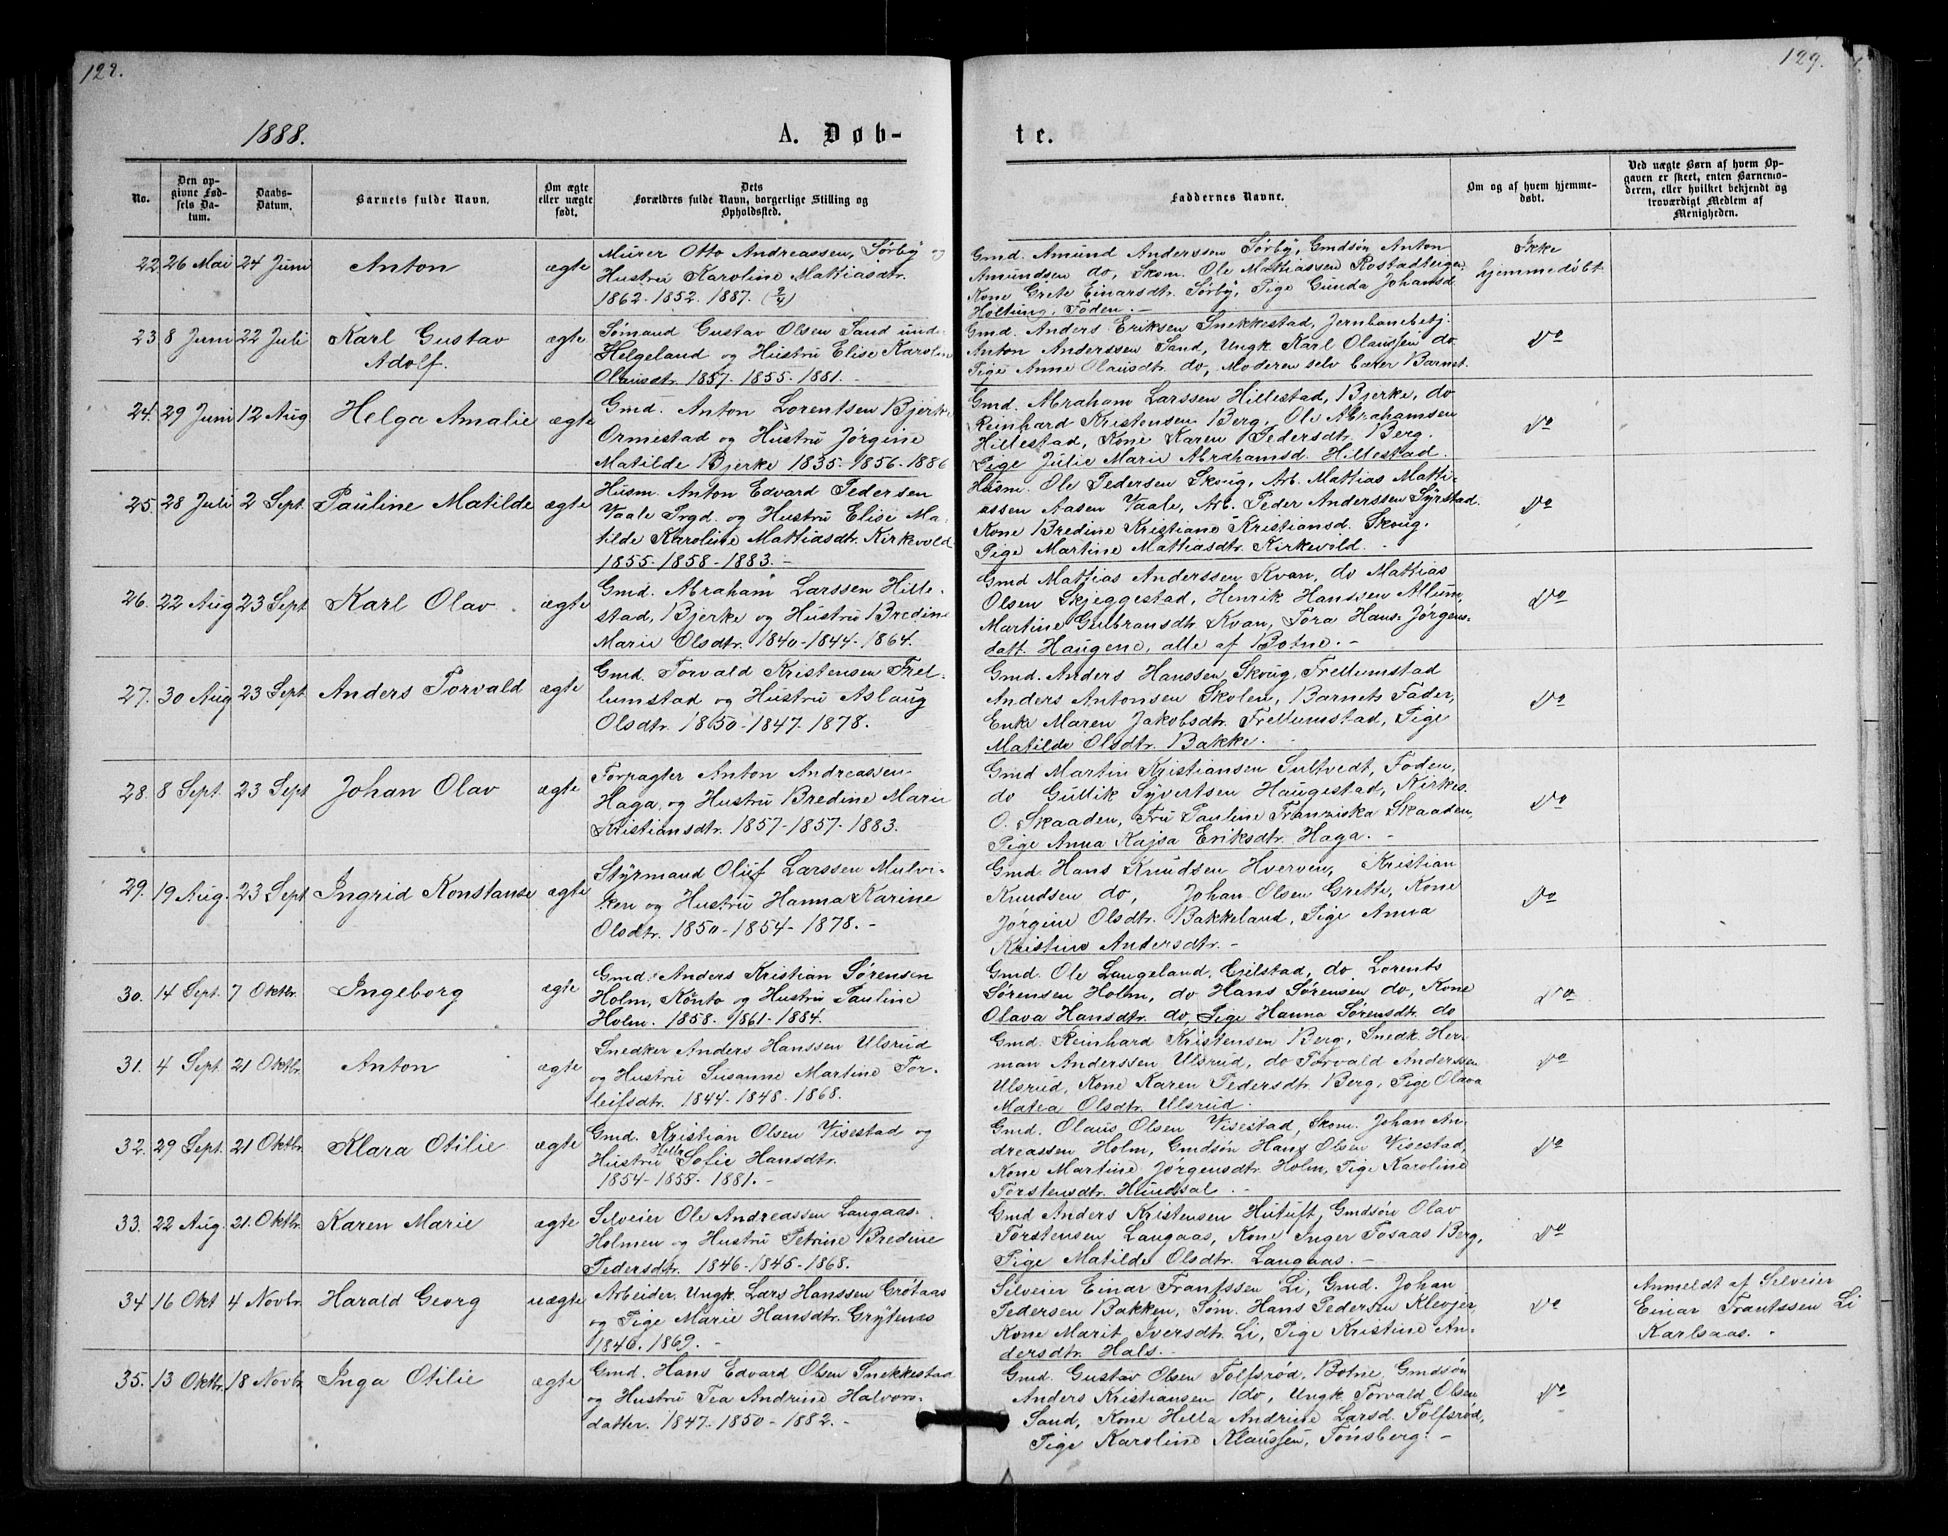 128.
1888.
A. Døb-
No.
Den op-
givne Fød-
sels Da-
tum.
Daabs-
Datum.
Barnets fulde Navn.
Om ægte
eller uægte
født.
Dets
Forældres fulde Navn, borgerlige Stilling og
Opholdssted.
22. 26 Mai 24 Juni Anton ægte
Murer Otto Andreassen, Sørby og
Hustru Karoline Mattiasdtr.
1862-1852. 1887. (2/4)
23. 8 Juni 22 Juli Karl Gustav
Adolf. ægte
Sømand Gustav Olsen Sand und.
Helgeland og Hustru Elise Karolin
Olausdtr. 1857. 1855. 1881. -
24. 29 Juni 12 Aug Helga Amalie ægte
Gmd. Anton Lorentsen Bjerke
Ormestad og Hustru Jørgine
Matilde Bjerke 1835-1856-1886
25. 28 Juli 2 Sept. Pauline Matilde ægte
Husm. Anton Edvard Pedersen
Vaale Prgd. og Hustru Elise Ma-
tilde Karoline Mattiasdtr. Kirkevold
1855-1858-1883. -
26. 22 Aug 23 Sept Karl Olav ægte
Gmd. Abraham Larssen Hille-
stad, Bjerke og Hustru Bredine
Marie Olsdtr. 1840-1844-1864.
27. 30 Aug 23 Sept Anders Torvald ægte
Gmd. Torvald Kristensen Frel-
lumstad og Hustru Aslaug
Olsdtr. 1850-1847-1878.
28. 8 Sept. 23 Sept Johan Olav ægte
Forpagter Anton Andreassen
Haga, og Hustru Bredine Marie
Kristiansdtr. 1857-1857-1883.
29. 19 Aug. 23 Sept Ingrid Konstanse ægte
Styrmand Oluf Larssen Mulvi-
ken og Hustru Hanna Karine
Olsdtr. 1850-1854-1878. -
30. 14 Sept. 7 Oktbr. Ingeborg ægte
Gmd. Anders Kristian Sørensen
Holm, Kønto og Hustru Pauline
Holm. 1858. 1861-1884.
31. 4 Sept. 21 Oktbr. Anton ægte
Snedker Anders Hanssen Ulsrud
og Hustru Susanne Martine Tor-
leifsdtr. 1844-1848-1868.
32. 29 Sept. 21 Oktbr. Klara Otilie ægte
Gmd. Kristian Olsen Visestad og
Hustru Sofie Hansdtr.
1854-1858-1881. -
33. 22 Aug. 21. Oktbr. Karen Marie ægte
Selveier Ole Andreassen Langaas-
Holmen og Hustru Petrine Bredine
Pedersdtr. 1846-1845-1868.
34 16 Okt 4 Novbr. Harald Georg uægte
Arbeider, Ungk. Lars Hanssen Grøtaas
og Pige Marie Hansdtr. Grytenæs
1846. 1869. -
35. 13 Oktbr. 18 Novbr. Inga Otilie ægte
Gmd. Hans Edvard Olsen Snekkestad
og Hustru Tea Andrine Halvors-
datter. 1847-1850-1882. -
129.
te.
Faddernes Navne.
Om og af hvem hjemme-
døbt.
Ved uægte Børn af hvem Op-
gaven er skeet, enten Barnemo-
deren, eller hvilket bekjendt og
troværdigt Medlem af
Menigheden.
Gmd. Amund Anderssen Sørby, Gmdsøn Anton
Amundsen do, Skom. Ole Mattiassen Rostadteigen
Kone Grete Einarsdtr. Sørby, Pige Gunda Johansd
Holtung, Faden. -
Ikke
hjemmedøbt.
Gmd. Anders Eriksen Snekkestad, Jernbanebetj.
Anton Anderssen Sand, Ungk. Karl Olaussen do
Pige Anne Olausdtr. do, Moderen selv bærer Barnet.
do
Gmd. Abraham Larssen Hillestad, Bjerke, do
Reinhard Kristensen Berg, Ole Abrahamsen
Hillestad, Kone Karen Pedersdtr. Berg.
Pige Julie Marie Abrahamsd. Hillestad.
do
Husm. Ole Pedersen Skoug, Arb. Mattias Matti-
assen Aasen Vaale, Arb. Peder Anderssen Syrstad.
Kone Bredine Kristiane Kristiansd. Skoug.
Pige Martine Mattiasdtr. Kirkevold. -
do
Gmd Mattias Anderssen Kvan, do Mattias
Olsen Skjeggestad, Henrik Hanssen Allum,
Martine Gulbransdtr Kvan, Tora Hans-Jørgens-
datt. Haugene, alle af Botne. -
do
Gmd. Anders Hanssen Skoug, Frellumstad
Anders Antonsen Skolen, Barnets Fader,
Enke Maren Jakobsdtr. Frellumstad, Pige
Matilde Olsdtr. Bakke. -
do
Gmd Martin Kristiansen Sultvedt, Foden,
do Gullik Syvertsen Haugestad, Kirkes.
O. Skaaden, Fru Pauline Franziska Skaaden,
Pige Anna Kajsa Eriksdtr. Haga. -
do
Gmd. Hans Knudsen Hverven, Kristian
Knudsen do, Johan Olsen Grette, Kone
Jørgine Olsdtr. Bakkeland, Pige Anna
Kristine Andersdtr. -
do
Gmd. Ole Langeland, Eielstad, do Lorents
Sørensen Holm, do Hans Sørensen do, Kone
Olava Hansdtr. do Pige Hanna Sørensdtr. do
do
Gmd. Reinhard Kristensen Berg, Snedk. Her-
man Anderssen Ulsrud, do Torvald Anderssen
Ulsrud, Kone Karen Pedersdtr. Berg, Pige Olava
Matea Olsdtr. Ulsrud.
do
Gmd. Olaus Olsen Visestad, Skom. Johan An-
dreassen Holm, Gmdsøn Hans Olsen Visestad,
Kone Martine Jørgensdtr. Holm, Pige Karoline
Torstensdtr. Hundsal. -
do
Gmd Anders Kristensen Hutuft, Gmdsøn Olav
Torstensen Langaas, Kone Inger Tosaas Berg,
Pige Matilde Olsdtr. Langaas. -
do
Selveier Einar Frantssen Li, Gmd. Johan
Pedersen Bakken, Søm. Hans Pedersen Klevjer,
Kone Marit Iversdtr. Li, Pige Kristine An-
dersdtr. Hals. -
do
Anmeldt af Selveier
Einar Frantssen Li
Karlsaas. -
Gmd. Gustav Olsen Tolfsrød, Botne, Gmdsøn
Anders Kristiansen do, Ungk. Torvald Olsen
Sand, Kone Hella Andrine Larsd. Tolfsrød,
Pige Karoline Klaussen, Tønsberg. -
do